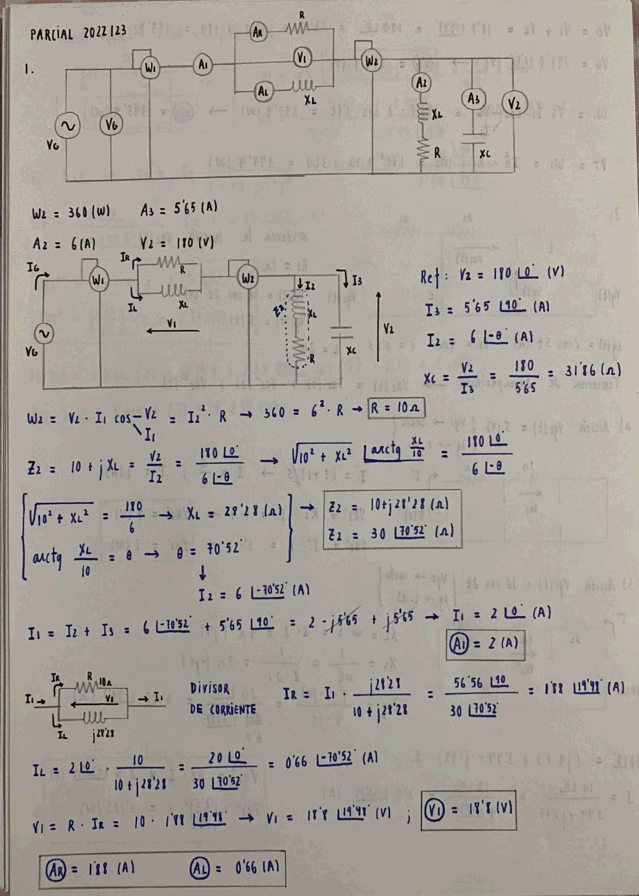 PARCIAL 2022/23
1.
W1 A1 AR R V1 AL XL W2 A2 XL R A3 XC V2 VG VG
W2 = 360 (W) A3 = 5'65 (A)
A2 = 6 (A) V2 = 180 (V)
IG W1 IR R IL XL V1 W2 I2 XL R I3 XC V2 VG
Ref: V2 = 180 |0° (V)
I3 = 5'65 |90° (A)
I2 = 6 |-θ (A)
XC = V2/I3 = 180/5'65 = 31'86 (Ω)
W2 = V2 · I1 cos V2 I1 = I2² · R → 360 = 6² · R → R = 10Ω
Z2 = 10 + j XL = V2/I2 = 180 |0°/6 |-θ → √10² + XL² |arctg XL/10 = 180 |0°/6 |-θ
√10² + XL² = 180/6 → XL = 28'28 (Ω)
arctg XL/10 = θ → θ = 70'52°
→ Z2 = 10 + j28'28 (Ω)
Z2 = 30 |70'52° (Ω)
↓
I2 = 6 |-70'52° (A)
I1 = I2 + I3 = 6 |-70'52° + 5'65 |90° = 2 - j5'65 + j5'65 → I1 = 2 |0° (A)
A1 = 2 (A)
I1 IR R 10Ω V1 I1 IL j28'28
DIVISOR
DE CORRIENTE
IR = I1 · j28'28/10 + j28'28 = 56'56 |90/30 |70'52° = 1'88 |19'48° (A)
IL = 2 |0° · 10/10 + j28'28 = 20 |0°/30 |70'52° = 0'66 |-70'52° (A)
V1 = R · IR = 10 · 1'88 |19'48° → V1 = 18'8 |19'48° (V) ; V1 = 18'8 (V)
AR = 1'88 (A) AL = 0'66 (A)